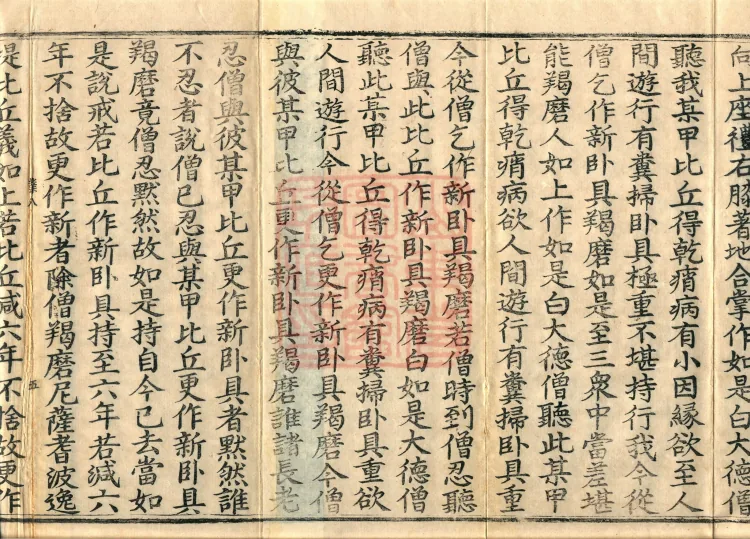 向上座禮右膝著地合掌作如是白大德僧
聽我某甲比丘得乾痟病有小因緣欲至人
間遊行有糞掃卧具極重不堪持行我今從
僧乞作新卧具羯磨如是至三衆中當差堪
能羯磨人如上作如是白大德僧聽此某甲
比丘得乾痟病欲人間遊行有糞掃卧具重
今從僧乞作新卧具羯磨若僧時到僧忍聽
僧與此比丘作新卧具羯磨白如是大德僧
聽此某甲比丘得乾痟病有糞掃卧具重欲
人間遊行今從僧乞更作新卧具羯磨今僧
與彼某甲比丘更作新卧具羯磨誰諸長老
忍僧與彼某甲比丘更作新卧具者默然誰
不忍者說僧已忍與某甲比丘更作新卧具
羯磨竟僧忍默然故如是持自今已去當如
是說戒若比丘作新卧具持至六年若減六
年不捨故更作新者除僧羯磨尼薩耆波逸
五
提比丘義如上若比丘減六年不捨故更作